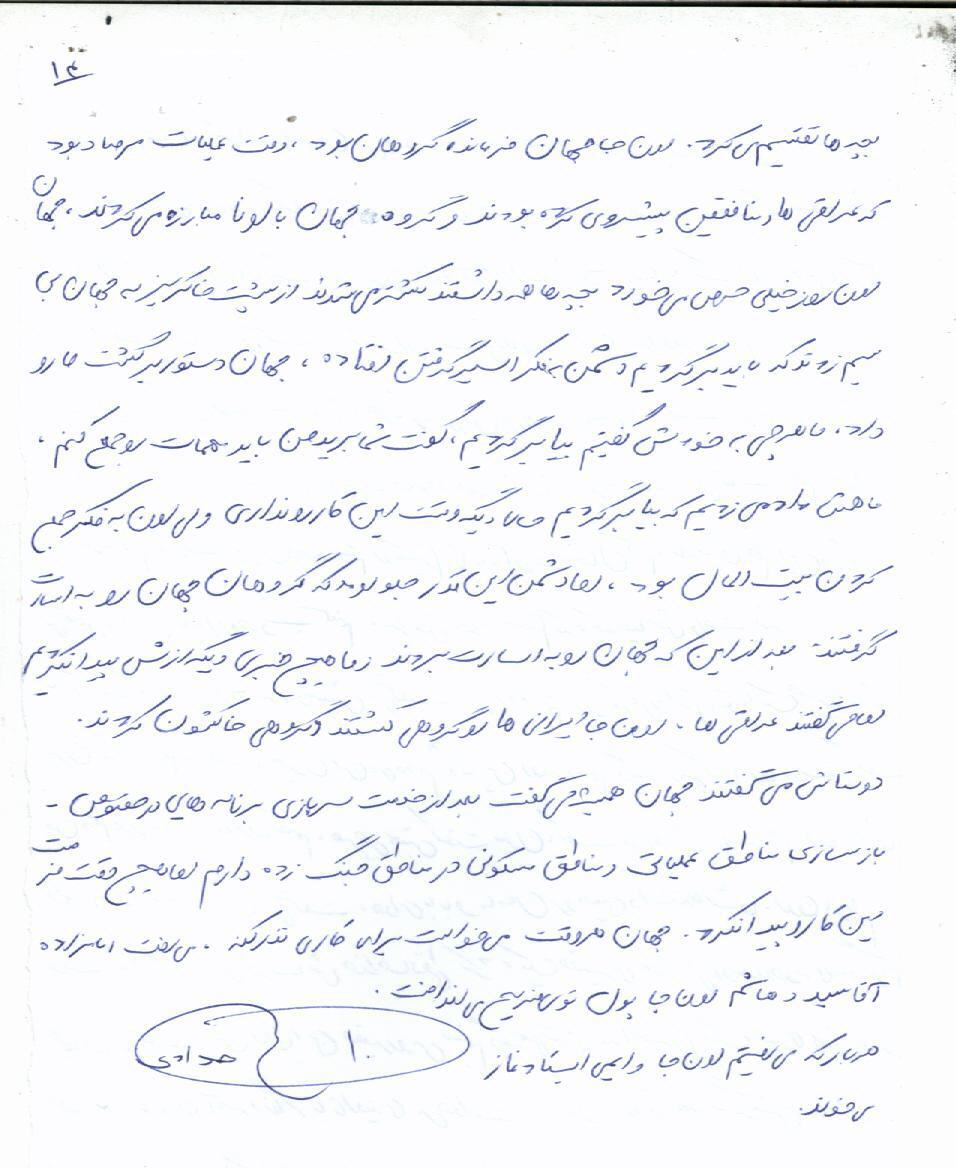 ۱۴
بچه ها تقسیم می کرد. اون جا جهان فرمانده گروهان بود، وقت عملیات مرصاد بود
که عراقی ها و منافقین پیشروی کرده بودند و گروه جهان با اونا مبارزه می کردند، جهان
اون روز خیلی حرص می خورد بچه ها همه داشتند کشته می شدند از پشت خاکریز به جهان بی
سیم زدند که باید برگردیم دشمن به فکر اسیر گرفتن افتاده، جهان دستور برگشت ما رو
داد، ما هرچی به خودش گفتیم بیا برگردیم، گفت شما برید من باید مهمات رو جمع کنم،
ما همش داد می زدیم که بیا برگردیم حالا دیگه وقت این کار رو نداری ولی اون به فکر جمع
کردن بیت المال بود، اما دشمن این قدر جلو اومد که گروهان جهان رو به اسارت
گرفتند. بعد از این که جهان رو به اسارت بردند ما هیچ خبری دیگه ازش پیدا نکردیم
اما می گفتند عراقی ها، اون جا ایرانی ها رو گروهی کشتند و گروهی خاکشون کردند.
دوستاش می گفتند جهان همیشه می گفت بعد از خدمت سربازی برنامه هایی در خصوص -
بازسازی مناطق عملیاتی و مناطق مسکونی در مناطق جنگ زده دارم اما هیچ وقت فرصت
این کار و پیدا نکرد. جهان هر وقت می خواست برای کاری نذر کنه، می رفت امامزاده
آقا سید هاشم اون جا پول توی ضریح می انداخت.
هر بار که می رفتیم اون جا وایمی ایستاد نماز
می خوند.
حدادی